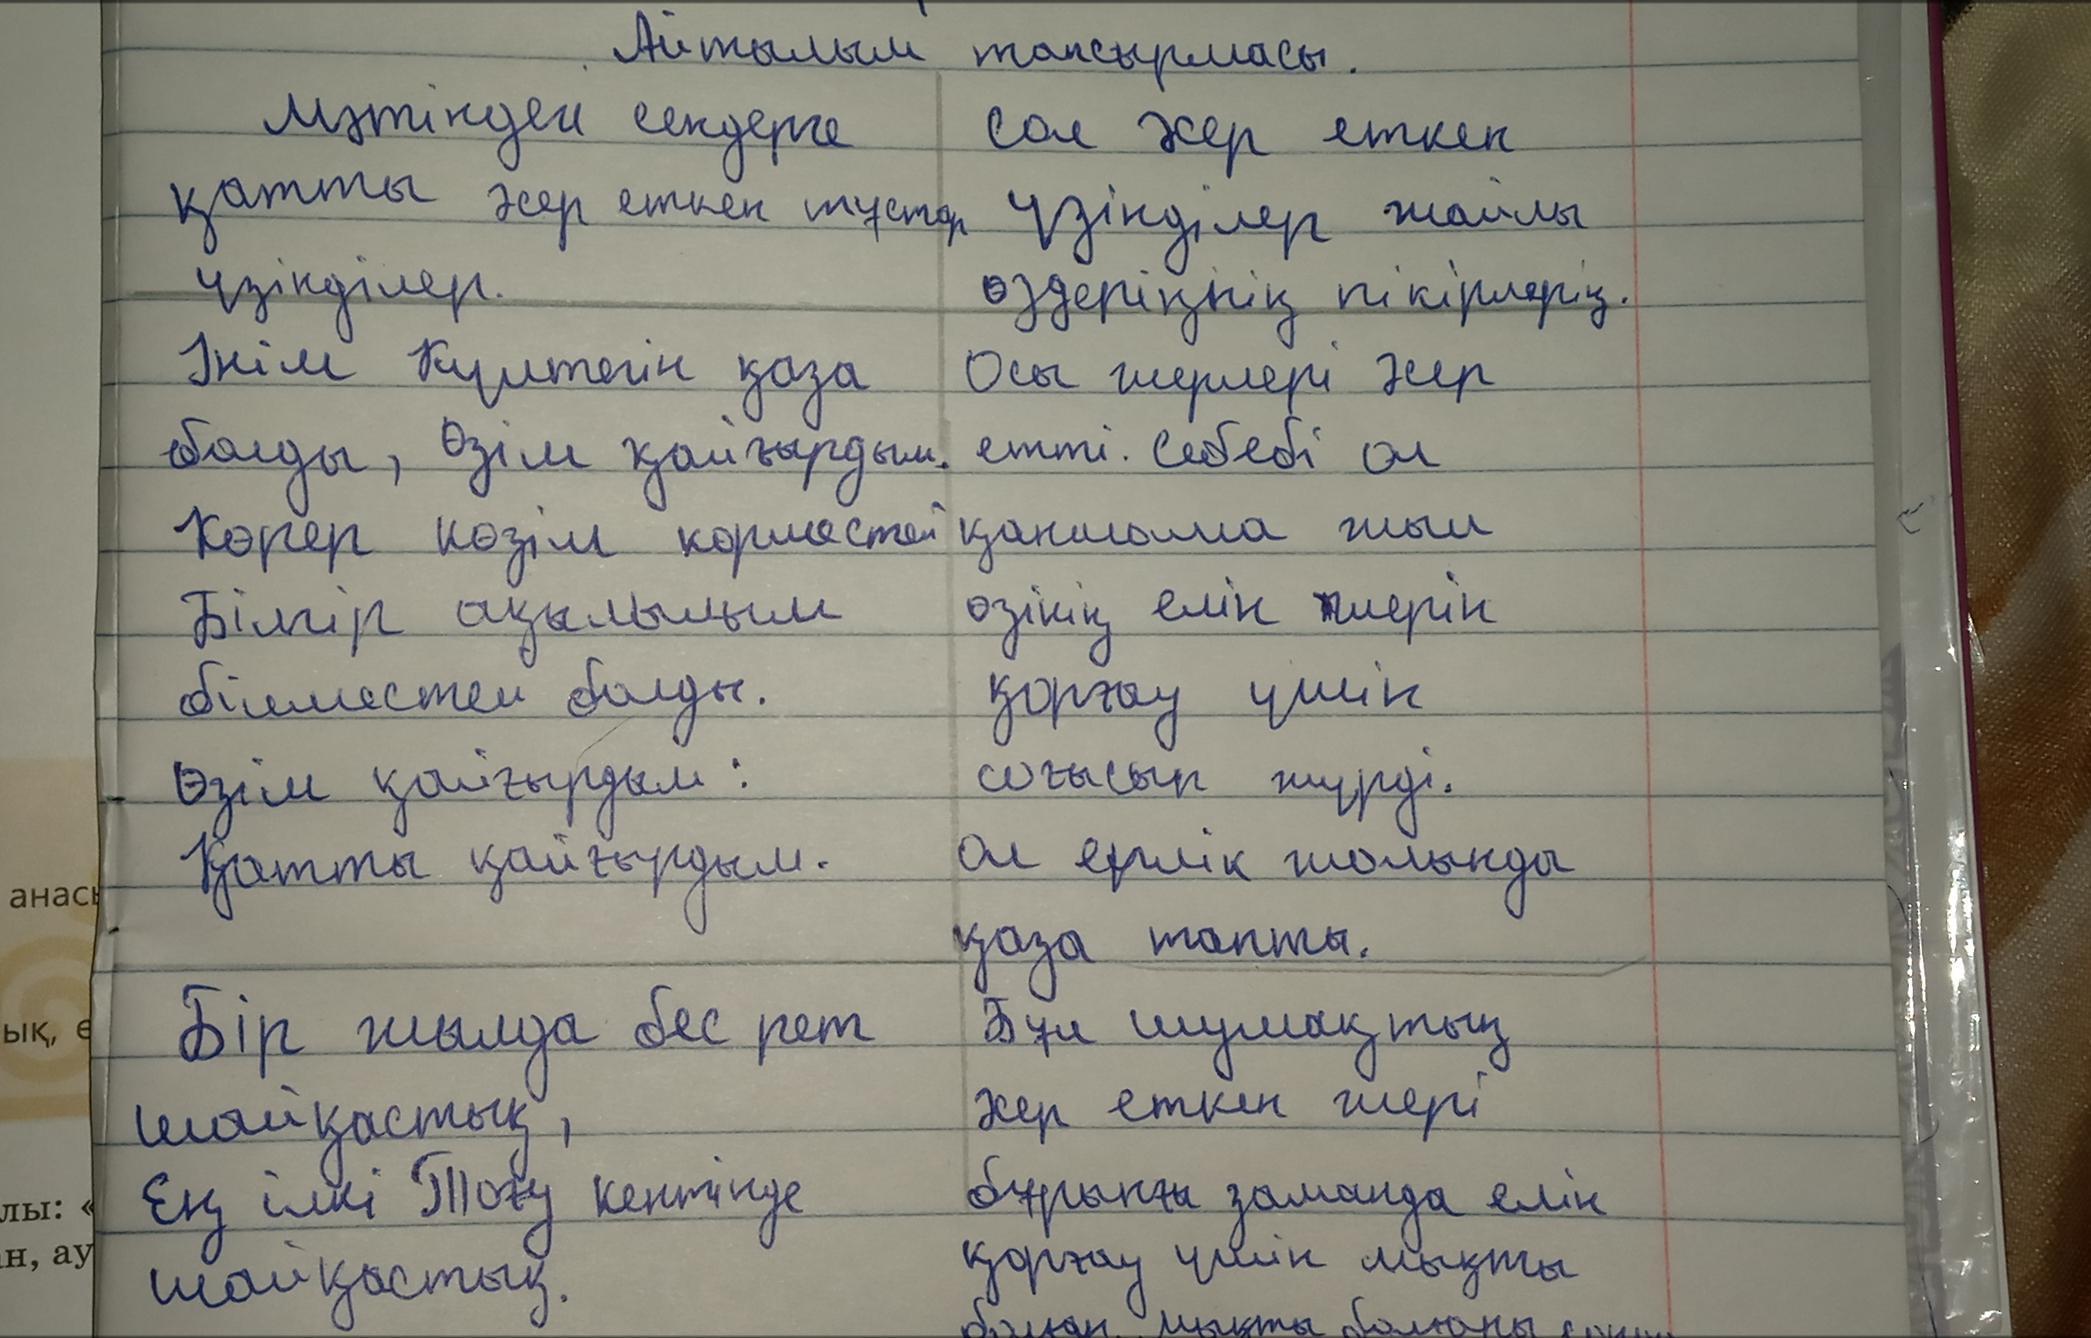 Айтылым тапсырмасы.
Мәтіндегі сендерге
қатты әсер еткен тұстар
үзінділер.
Інім Күлтегін қаза
болды, Өзім қайғырдым.
Көрер көзім көрместей
Білгір ақылымым
білместей болды.
Өзім қайғырдым:
Қатты қайғырдым.
Бір жылда бес рет
шайқастық,
Ең ілкі Тоғу кентінде
шайқастық.
Сол әсер еткен
үзінділер жайлы
өздеріңнің пікірлерің.
Осы жерлері әсер
етті. Себебі ол
қаншама жыл
өзінің елін жерін
қорғау үшін
соғысып жүрді.
Ол ерлік жолында
қаза тапты.
Бұл шумақтың
әсер еткен жері
бұрынғы заманда елін
қорғау үшін мықты
болған, мықты болғаны
анас
ық, ө
лы: «
н, ау